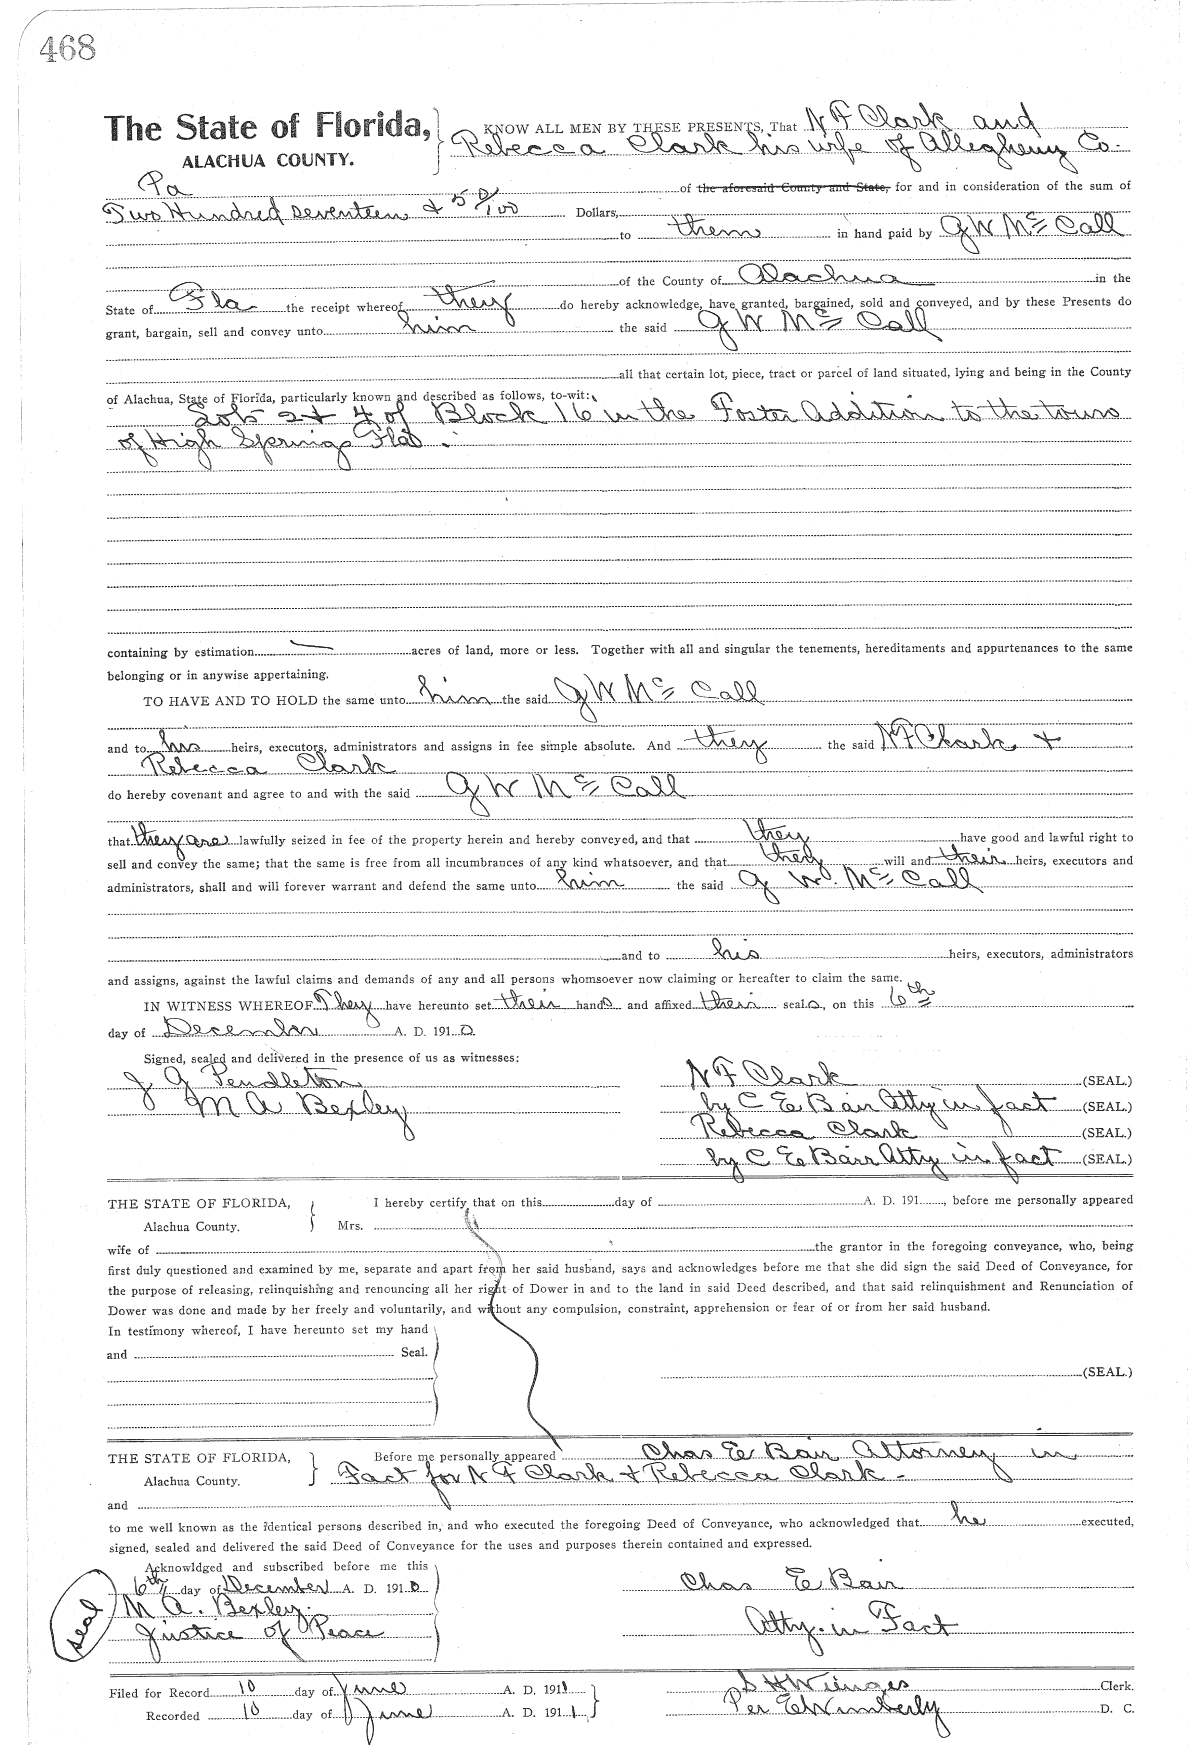 468
The State of Florida,
ALACHUA COUNTY.
KNOW ALL MEN BY THESE PRESENTS, That N F Clark and
Rebecca Clark his wife of Allegheny Co.
Pa of the aforesaid County and State, for and in consideration of the sum of
Two Hundred Seventeen & 50/100 Dollars,
to them in hand paid by G W McCall
of the County of Alachua in the
State of Fla the receipt whereof they do hereby acknowledge, have granted, bargained, sold and conveyed, and by these Presents do
grant, bargain, sell and convey unto him the said G W McCall
all that certain lot, piece, tract or parcel of land situated, lying and being in the County
of Alachua, State of Florida, particularly known and described as follows, to-wit:
Lots 2 & 4 of Block 16 in the Foster Addition to the town
of High Springs Fla.
containing by estimation acres of land, more or less. Together with all and singular the tenements, hereditaments and appurtenances to the same
belonging or in anywise appertaining.
TO HAVE AND TO HOLD the same unto him the said G W McCall
and to his heirs, executors, administrators and assigns in fee simple absolute. And they the said N F Clark &
Rebecca Clark
do hereby covenant and agree to and with the said G W McCall
that they are lawfully seized in fee of the property herein and hereby conveyed, and that they have good and lawful right to
sell and convey the same; that the same is free from all incumbrances of any kind whatsoever, and that they will and their heirs, executors and
administrators, shall and will forever warrant and defend the same unto him the said G W. McCall
and to his heirs, executors, administrators
and assigns, against the lawful claims and demands of any and all persons whomsoever now claiming or hereafter to claim the same.
IN WITNESS WHEREOF They have hereunto set their hands and affixed their seals, on this 6th
day of December A. D. 1910.
Signed, sealed and delivered in the presence of us as witnesses:
J G Pendleton N F Clark (SEAL.)
M A Bexley by C E Bair Atty in fact (SEAL.)
Rebecca Clark (SEAL.)
by C E Bair Atty in fact (SEAL.)
THE STATE OF FLORIDA, I hereby certify that on this day of A. D. 191, before me personally appeared
Alachua County. Mrs.
wife of the grantor in the foregoing conveyance, who, being
first duly questioned and examined by me, separate and apart from her said husband, says and acknowledges before me that she did sign the said Deed of Conveyance, for
the purpose of releasing, relinquishing and renouncing all her right of Dower in and to the land in said Deed described, and that said relinquishment and Renunciation of
Dower was done and made by her freely and voluntarily, and without any compulsion, constraint, apprehension or fear of or from her said husband.
In testimony whereof, I have hereunto set my hand
and Seal.
(SEAL.)
THE STATE OF FLORIDA, Before me personally appeared Chas E Bair Attorney in
Alachua County. Fact for N F Clark & Rebecca Clark
and
to me well known as the identical persons described in, and who executed the foregoing Deed of Conveyance, who acknowledged that he executed,
signed, sealed and delivered the said Deed of Conveyance for the uses and purposes therein contained and expressed.
Acknowldged and subscribed before me this
6th day of December A. D. 1910 Chas E Bair
M A. Bexley.
Justice of Peace Atty. in Fact
Seal
Filed for Record 10 day of June A. D. 1911 S H Wienges Clerk.
Recorded 10 day of June A. D. 1911 Per E Wimberly D. C.